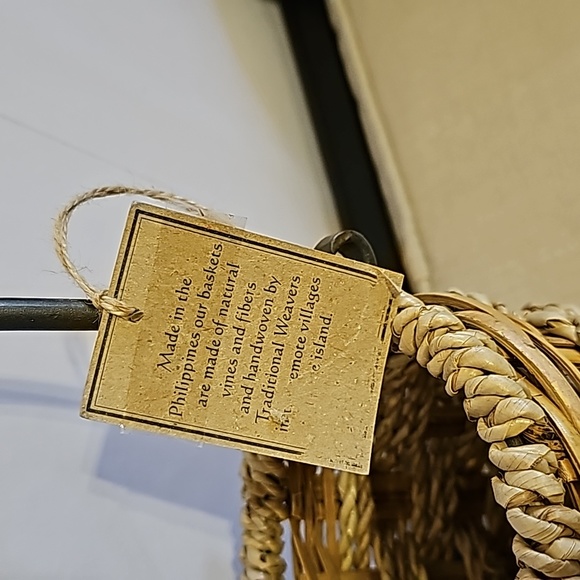 Made in the
Philippines our baskets
are made of natural
vines and fibers
and handwoven by
Traditional Weavers
emote villages
e island.